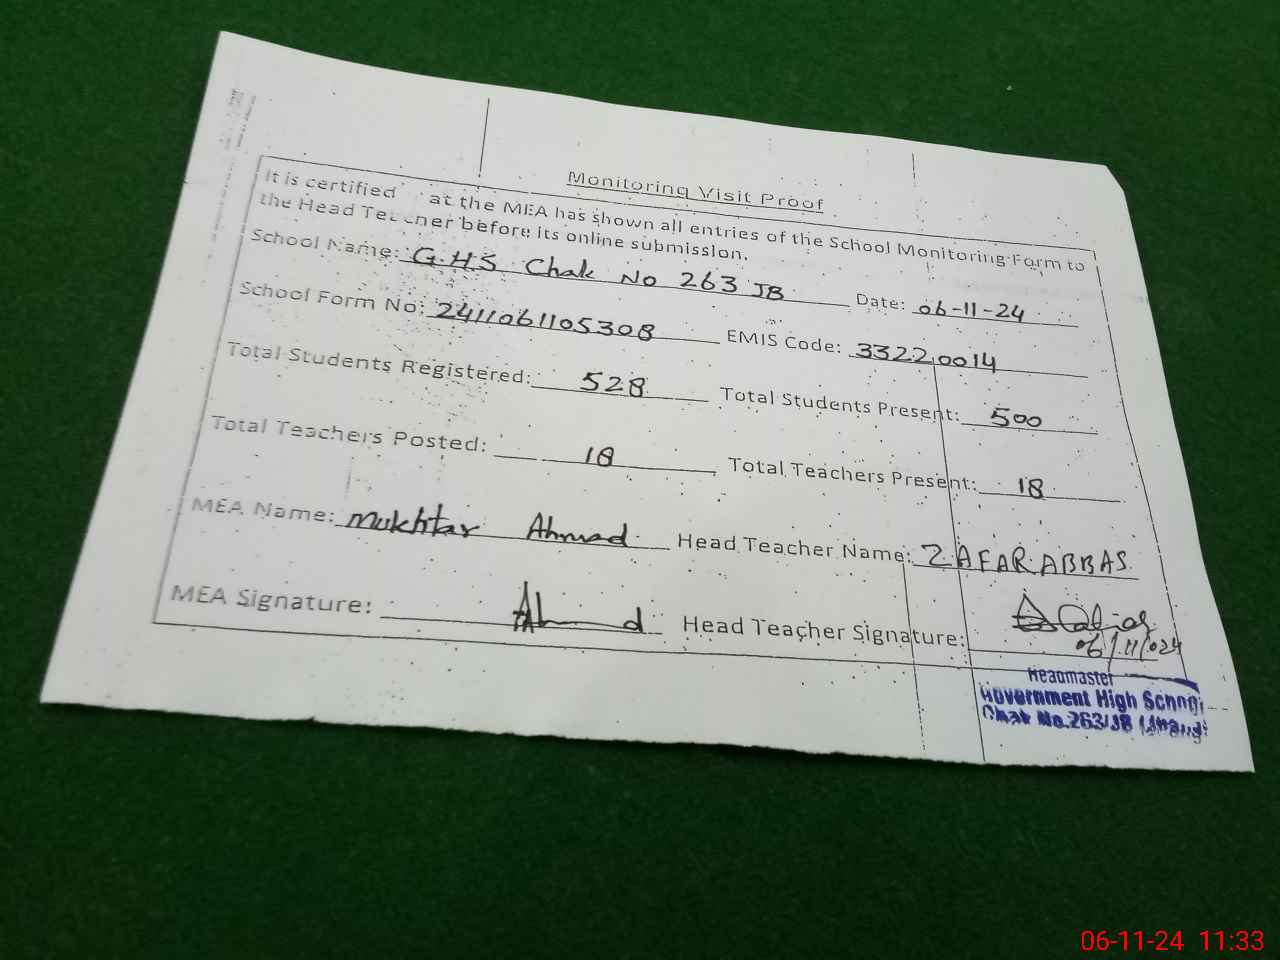 Monitoring Visit Proof
It is certified at the MEA has shown all entries of the School Monitoring Form to
the Head Teacher before its online submission.
School Name: G.H.S Chak No 263 JB Date: 06-11-24
School Form No: 2411061105308 EMIS Code: 33220014
Total Students Registered: 528 Total Students Present: 500
Total Teachers Posted: 18 Total Teachers Present: 18
MEA Name: Mukhtar Ahmad Head Teacher Name: ZAFAR ABBAS
MEA Signature: Ahmad Head Teacher Signature:
06/11/024
Headmaster
Government High School
Chak No.263/JB
06-11-24 11:33